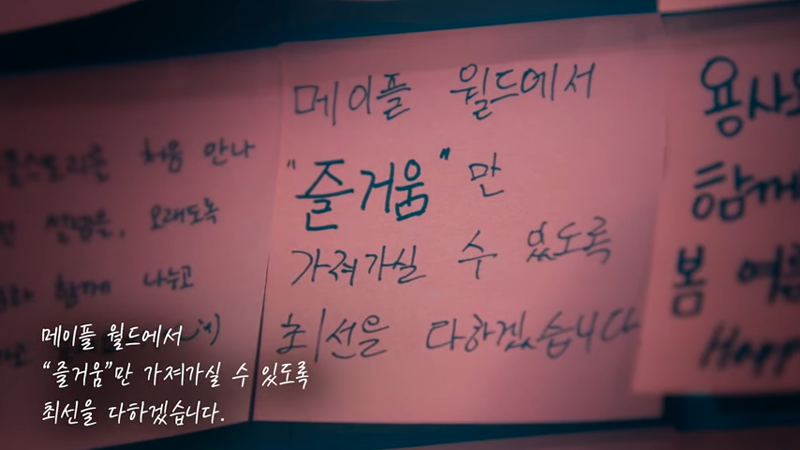 처음 만나
설렘을, 오래도록
함께 나누고
메이플 월드에서
"즐거움"만
가져가실 수 있도록
최선을 다하겠습니다
용사
함께
봄 여름
Happ
메이플 월드에서
“즐거움”만 가져가실 수 있도록
최선을 다하겠습니다.